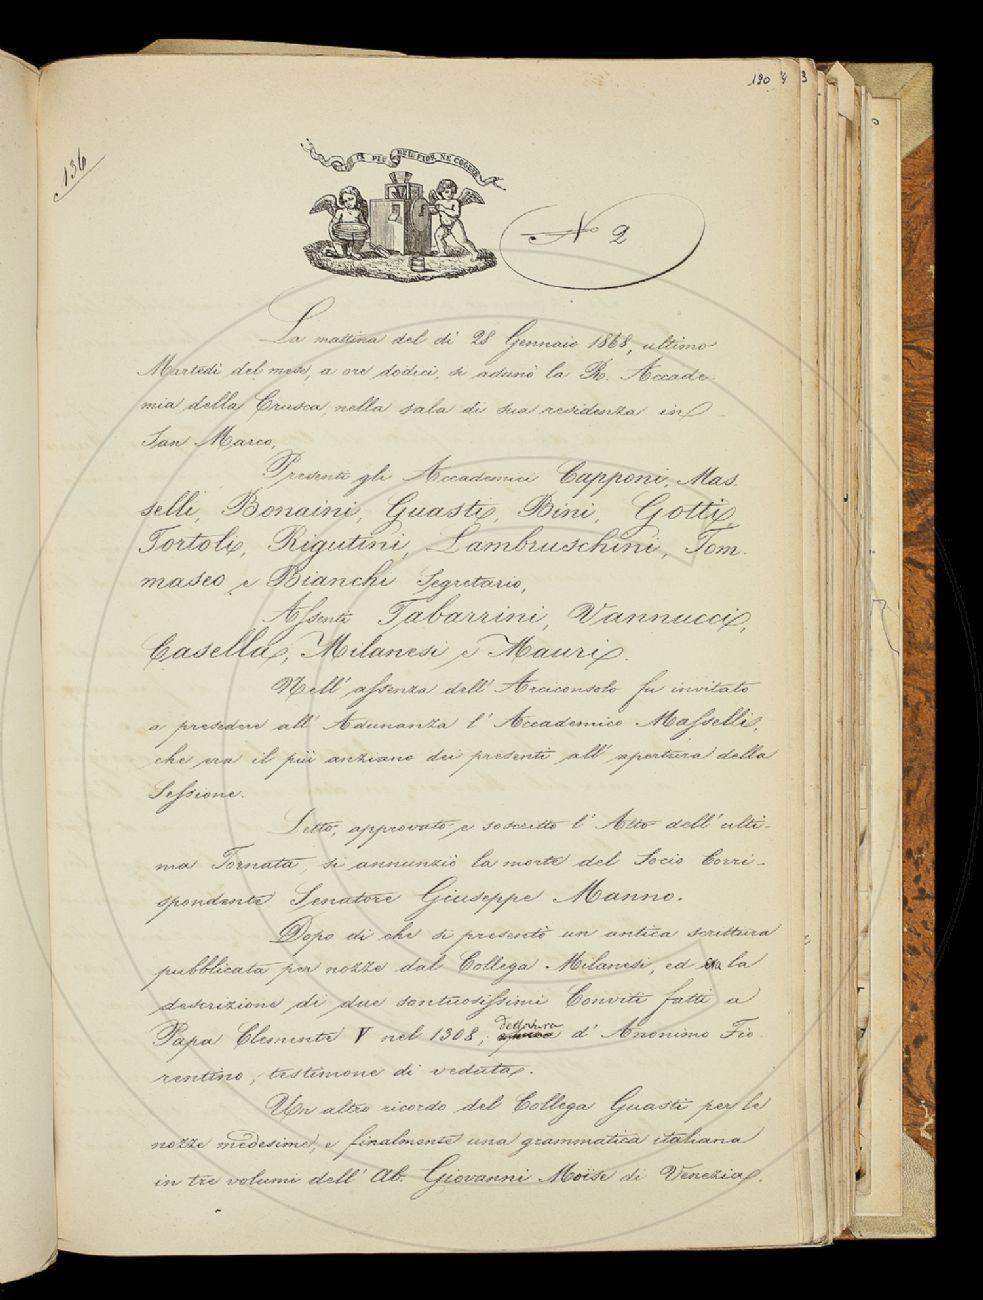 190
3
136
IL PIÙ BEL FIOR NE COGLIE
N.o 2
La mattina del dì 28 Gennaio 1868, ultimo
Martedì del mese, a ore dodici, si adunò la R. Accade-
mia della Crusca, nella sala di sua residenza in
San Marco,
Presenti gli Accademici Capponi, Mas-
selli, Bonaini, Guasti, Bini, Gotti,
Tortoli, Rigutini, Lambruschini, Tom-
maseo e Bianchi Segretario,
Assenti Tabarrini, Vannucci,
Casella, Milanesi e Mauri.
Nell' assenza dell' Arciconsolo fu invitato
a presedere all' Adunanza l' Accademico Masselli,
che era il più anziano dei presenti all' apertura della
Sessione.
Letto, approvato e soscritto l' Atto dell' ulti-
ma Tornata, si annunziò la morte del Socio Corri-
spondente Senatore Giuseppe Manno.
Dopo di che si presentò un antica scrittura
pubblicata per nozze dal Collega Milanesi, ed era la
descrizione di due sontuosissimi Conviti fatti a
Papa Clemente V nel 1308; dettatura d' Anonimo Fio-
rentino, testimone di veduta.
Un altro ricordo del Collega Guasti per le
nozze medesime, e finalmente una grammatica italiana
in tre volumi dell' Ab. Giovanni Moise di Venezia.